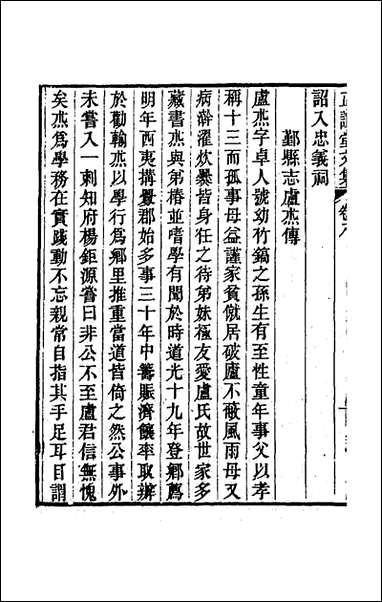 正誼堂文集 卷八
詔入忠義祠
鄞縣志盧杰傳
盧杰字卓人號幼竹鎬之孫生有至性童年事父以孝
稱十三而孤事母益謹家貧僦居破廬不蔽風雨母又
病辭濯炊爨皆身任之待弟妹極友愛盧氏故世家多
藏書杰與弟椿並嗜學有聞於時道光十九年登鄉薦
明年西夷搆釁郡始多事三十年中籌賑濟饟率取辦
於勸輸杰以學行爲鄉里推重當道皆倚之然公事外
未嘗入一刺知府楊鉅源嘗曰非公不至盧君信無愧
矣杰爲學務在實踐動不忘親常自指其手足耳目謂